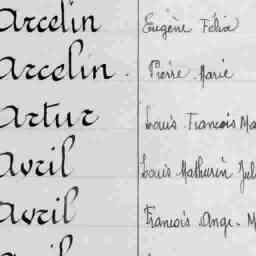 Arcelin Eugène Félix
Arcelin. Pierre Marie
Artur Louis François Ma
Avril Louis Mathurin Jul
Avril François Ange. M
Avril